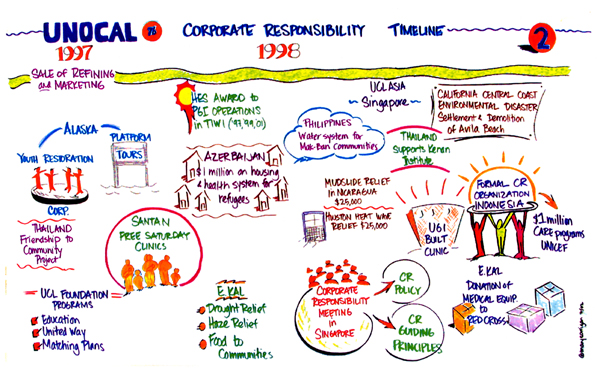 UNOCAL 76 CORPORATE RESPONSIBILITY TIMELINE 2
1997 1998
SALE OF REFINING
and MARKETING
ALASKA
PLATFORM
TOURS
YOUTH RESTORATION
CORP.
THAILAND
Friendship to
Community
Project
SANTAN
FREE SATURDAY
CLINICS
UCL FOUNDATION
PROGRAMS
Education
United Way
Matching Plans
HES AWARD to
PGI OPERATIONS
in TIWI ('97,'99,'01)
AZERBAIJAN
$1 million on housing
& health system for
refugees
E. KAL
Drought Relief
Haze Relief
Food to
Communities
UCL ASIA
Singapore
PHILIPPINES
Water system for
Mak-Ban Communities
THAILAND
Supports Kenan
Institute
CALIFORNIA CENTRAL COAST
ENVIRONMENTAL DISASTER
Settlement & Demolition
of Avila Beach
MUDSLIDE RELIEF
in NICARAGUA
$25,000
HOUSTON HEAT WAVE
RELIEF $25,000
UGI
BUILT
CLINIC
FORMAL CR
ORGANIZATION
INDONESIA
$1 million
CARE programs
UNICEF
CORPORATE
RESPONSIBILITY
MEETING
in
SINGAPORE
CR
POLICY
CR
GUIDING
PRINCIPLES
E. KAL
DONATION of
MEDICAL EQUIP.
to
RED CROSS